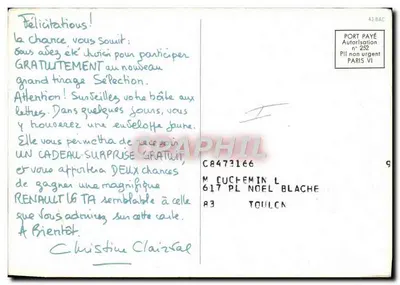 Félicitations!
La chance vous sourit:
vous avez été choisi pour participer
GRATUITEMENT au nouveau
grand tirage Sélection.
Attention! Surveillez votre boîte aux
lettres. Dans quelques jours, vous
y trouverez une enveloppe jaune.
Elle vous permettra de
UN CADEAU-SURPRISE GRATUIT,
et vous apportera DEUX chances
de gagner une magnifique
RENAULT 16 TA semblable à celle
que vous admirez sur cette carte.
A Bientôt.
Christine Clairval
PORT PAYÉ
Autorisation
n° 252
Pli non urgent
PARIS VI
CPRENTOCARD
C8473166 9
M DUCHEMIN L
617 PL NOEL BLACHE
83 TOULON